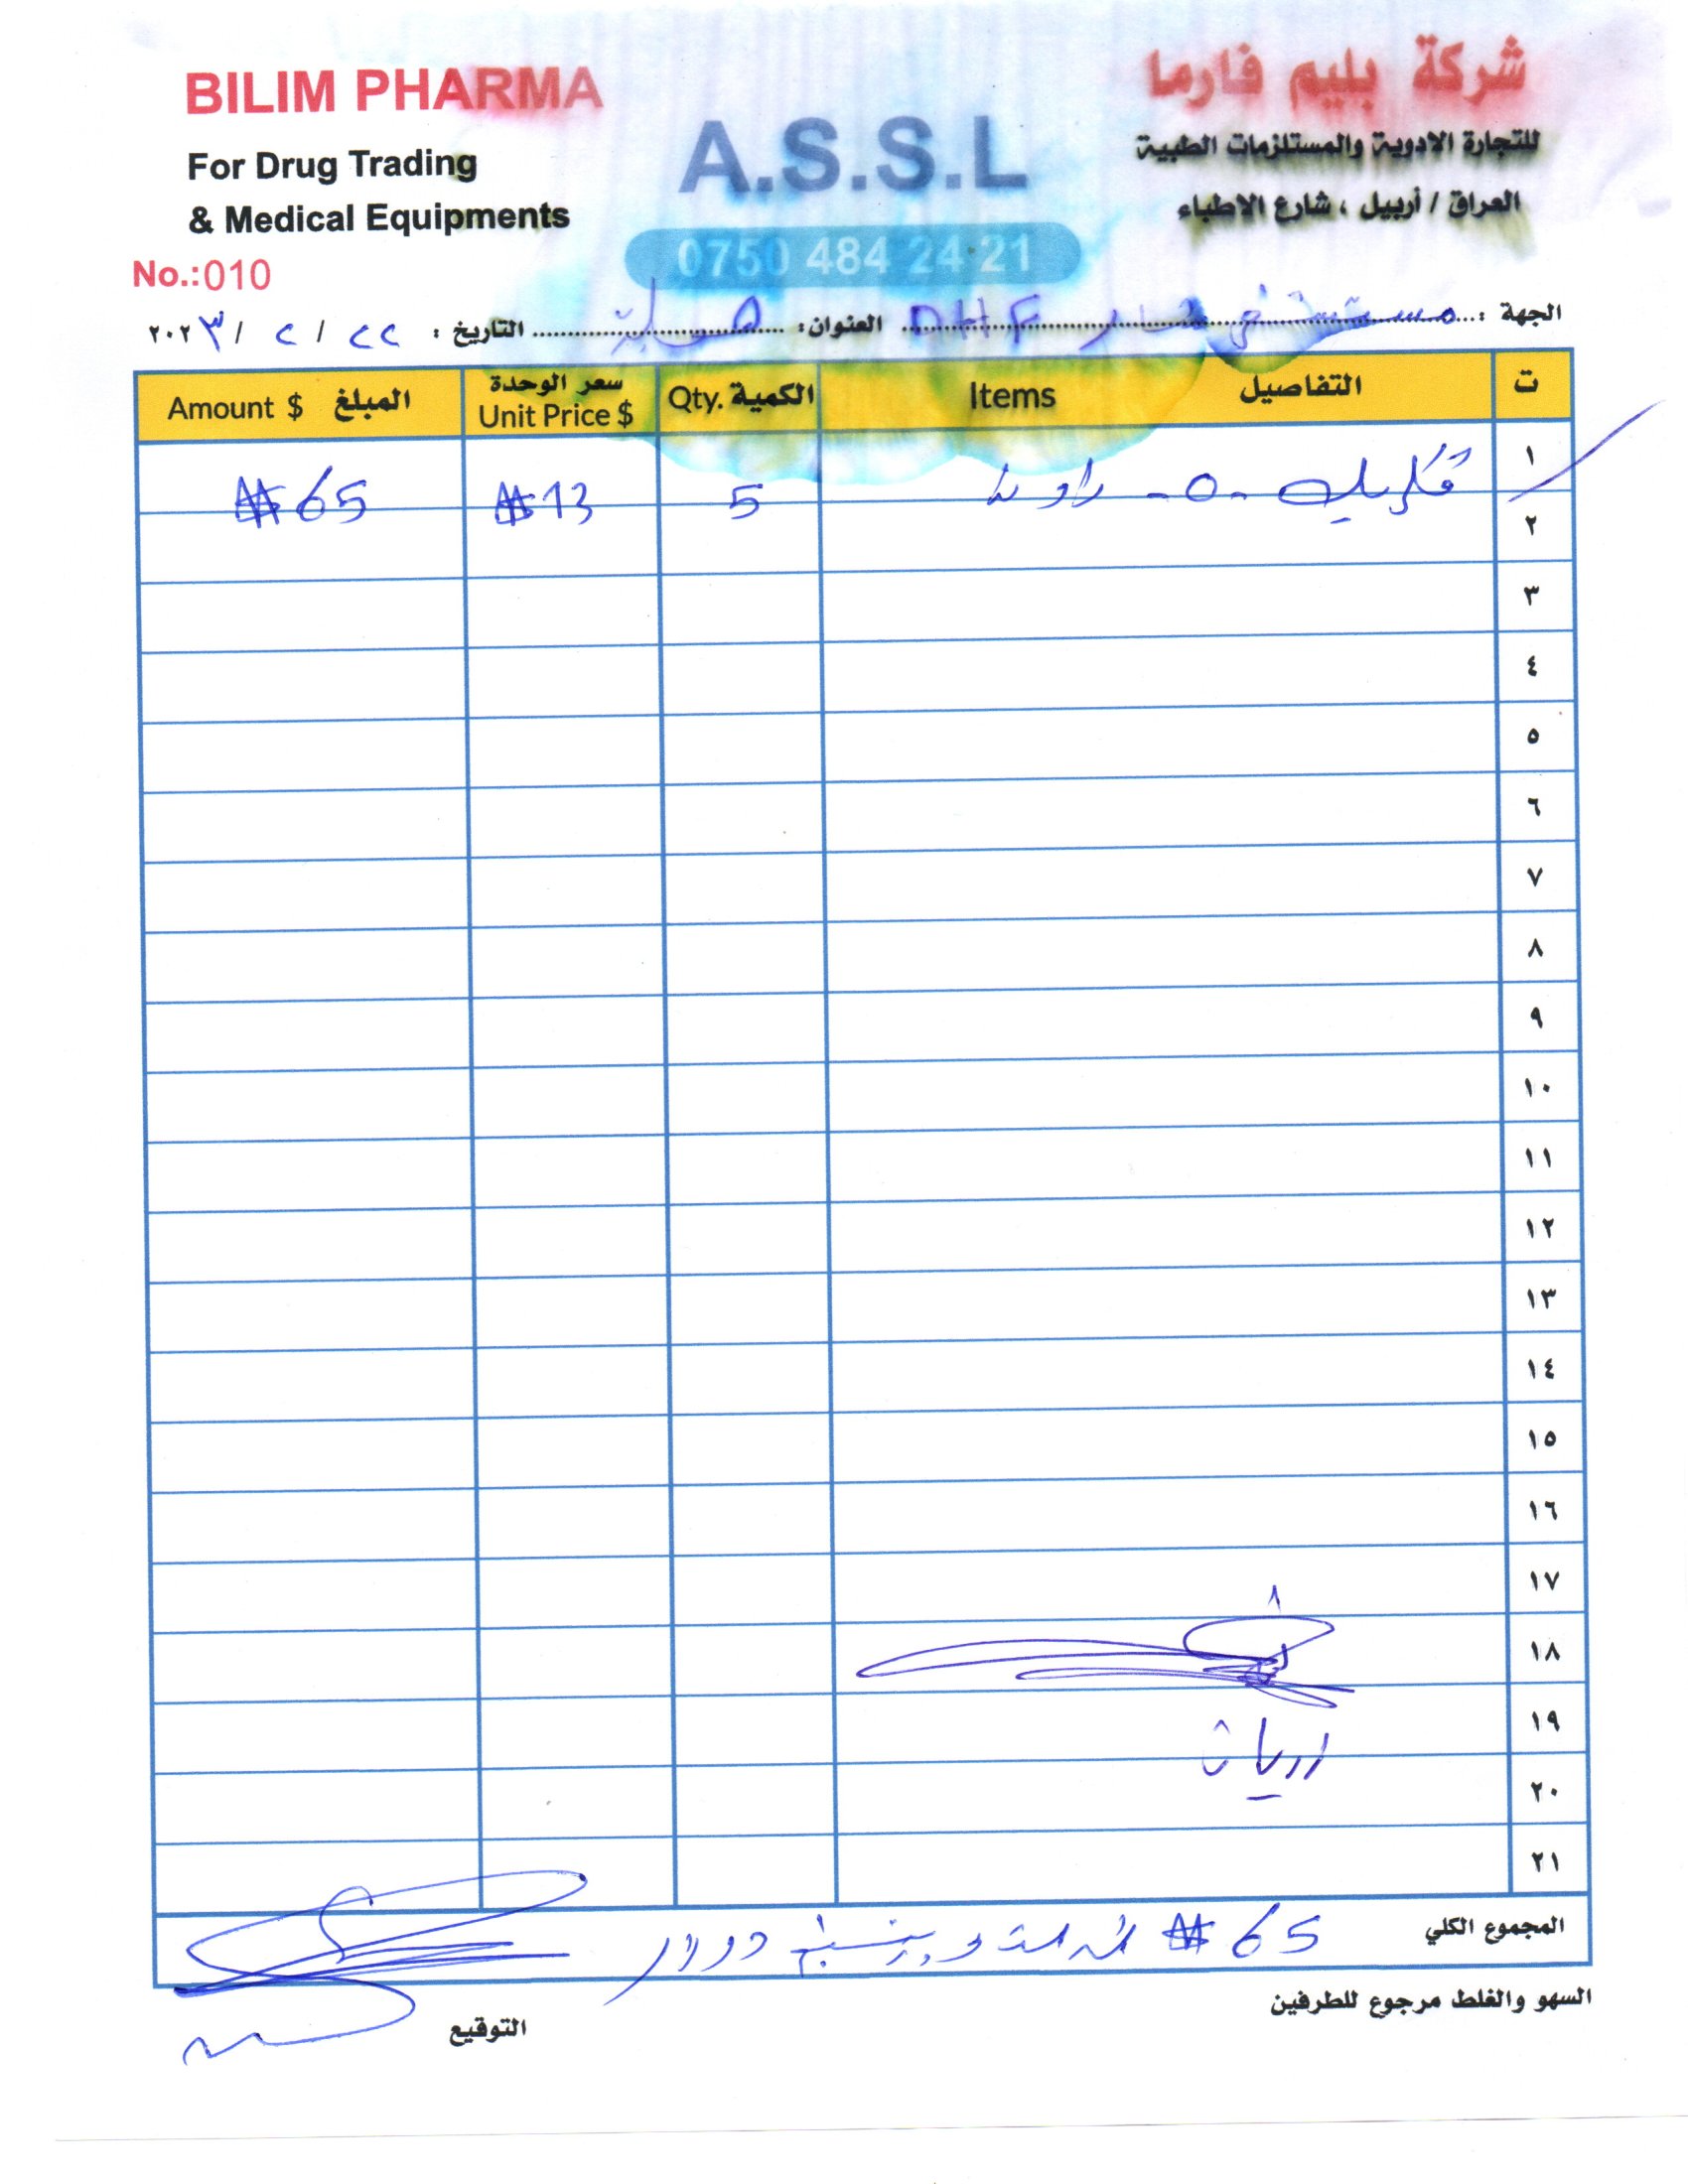 BILIM PHARMA
For Drug Trading
& Medical Equipments
No.:010
A.S.S.L
0750 484 24 21
شركة بليم فارما
للتجارة الادوية والمستلزمات الطبية
العراق / أربيل ، شارع الاطباء
الجهة : مستشفى DHF العنوان: التاريخ : ٢٢ / ٢ / ٢٠٢٣
ت التفاصيل Items الكمية Qty. سعر الوحدة Unit Price $ المبلغ Amount $
١ 5 $13 $65
٢
٣
٤
٥
٦
٧
٨
٩
١٠
١١
١٢
١٣
١٤
١٥
١٦
١٧
١٨
١٩
٢٠
٢١
المجموع الكلي 65 $
السهو والغلط مرجوع للطرفين
التوقيع